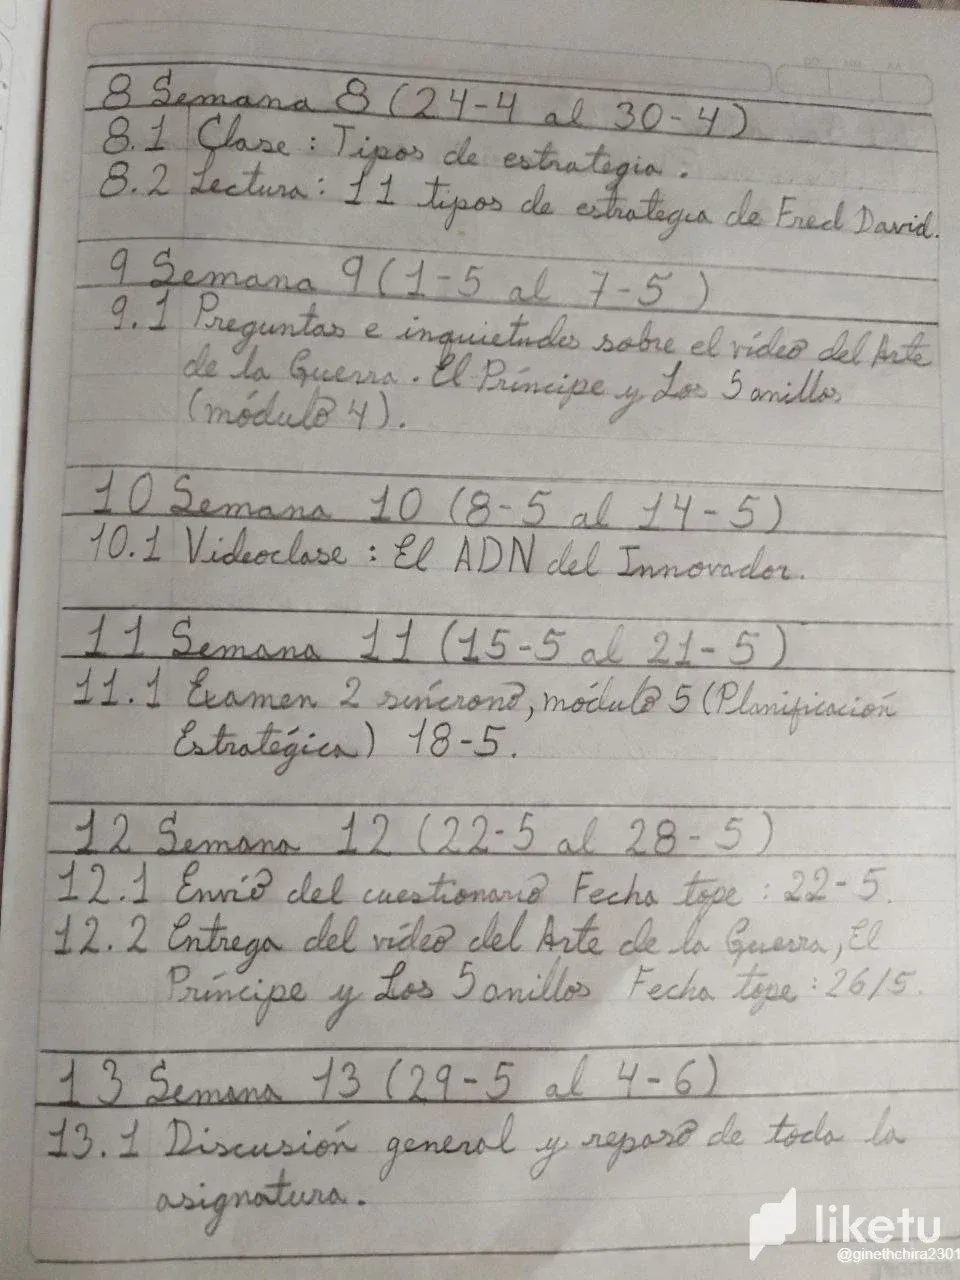 8 Semana 8 (24-4 al 30-4)
8.1 Clase: Tipos de estrategia.
8.2 Lectura: 11 tipos de estrategia de Fred David.
9 Semana 9 (1-5 al 7-5)
9.1 Preguntas e inquietudes sobre el vídeo del Arte
de la Guerra. El Príncipe y Los 5 anillos
(módulo 4).
10 Semana 10 (8-5 al 14-5)
10.1 Videoclase: El ADN del Innovador.
11 Semana 11 (15-5 al 21-5)
11.1 Examen 2 síncrono, módulo 5 (Planificación
Estratégica) 18-5.
12 Semana 12 (22-5 al 28-5)
12.1 Envío del cuestionario Fecha tope: 22-5.
12.2 Entrega del vídeo del Arte de la Guerra, El
Príncipe y Los 5 anillos Fecha tope: 26/5.
13 Semana 13 (29-5 al 4-6)
13.1 Discusión general y repaso de toda la
asignatura.
liketu
@ginethchira2301